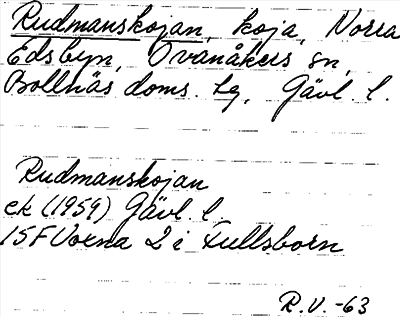 Rudmanskojan, koja, Norra
Edsbyn, Ovanåkers sn,
Bollnäs doms. tg, Gävl. l.
Rudmanskojan
ek (1959) Gävl. l.
15F Voxna 2 i Fullsborn
R.V. -63